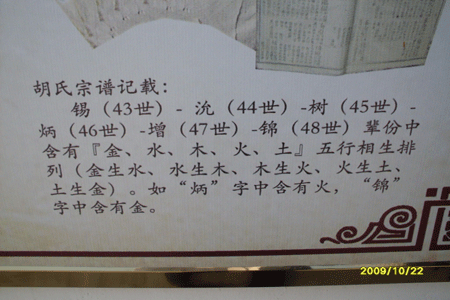 胡氏宗谱记载：
锡（43世）- 沇（44世）-树（45世）-
炳（46世）-增（47世）-锦（48世）辈份中
含有『金、水、木、火、土』五行相生排
列（金生水、水生木、木生火、火生土、
土生金）。如“炳”字中含有火，“锦”
字中含有金。
2009/10/22